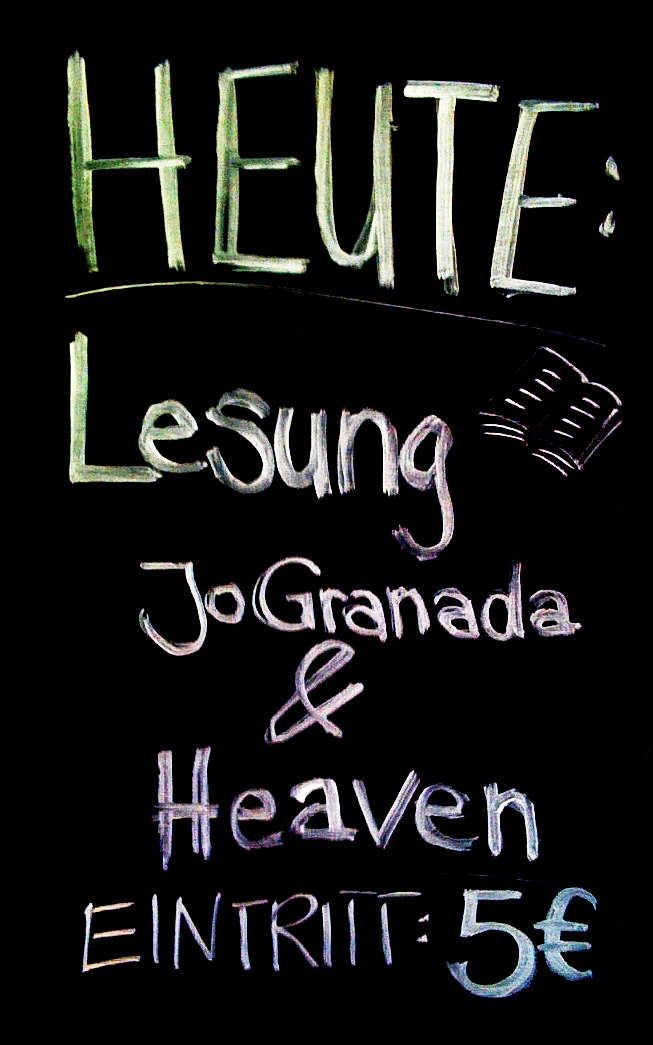 HEUTE:
Lesung
Jo Granada
&
Heaven
EINTRITT: 5€